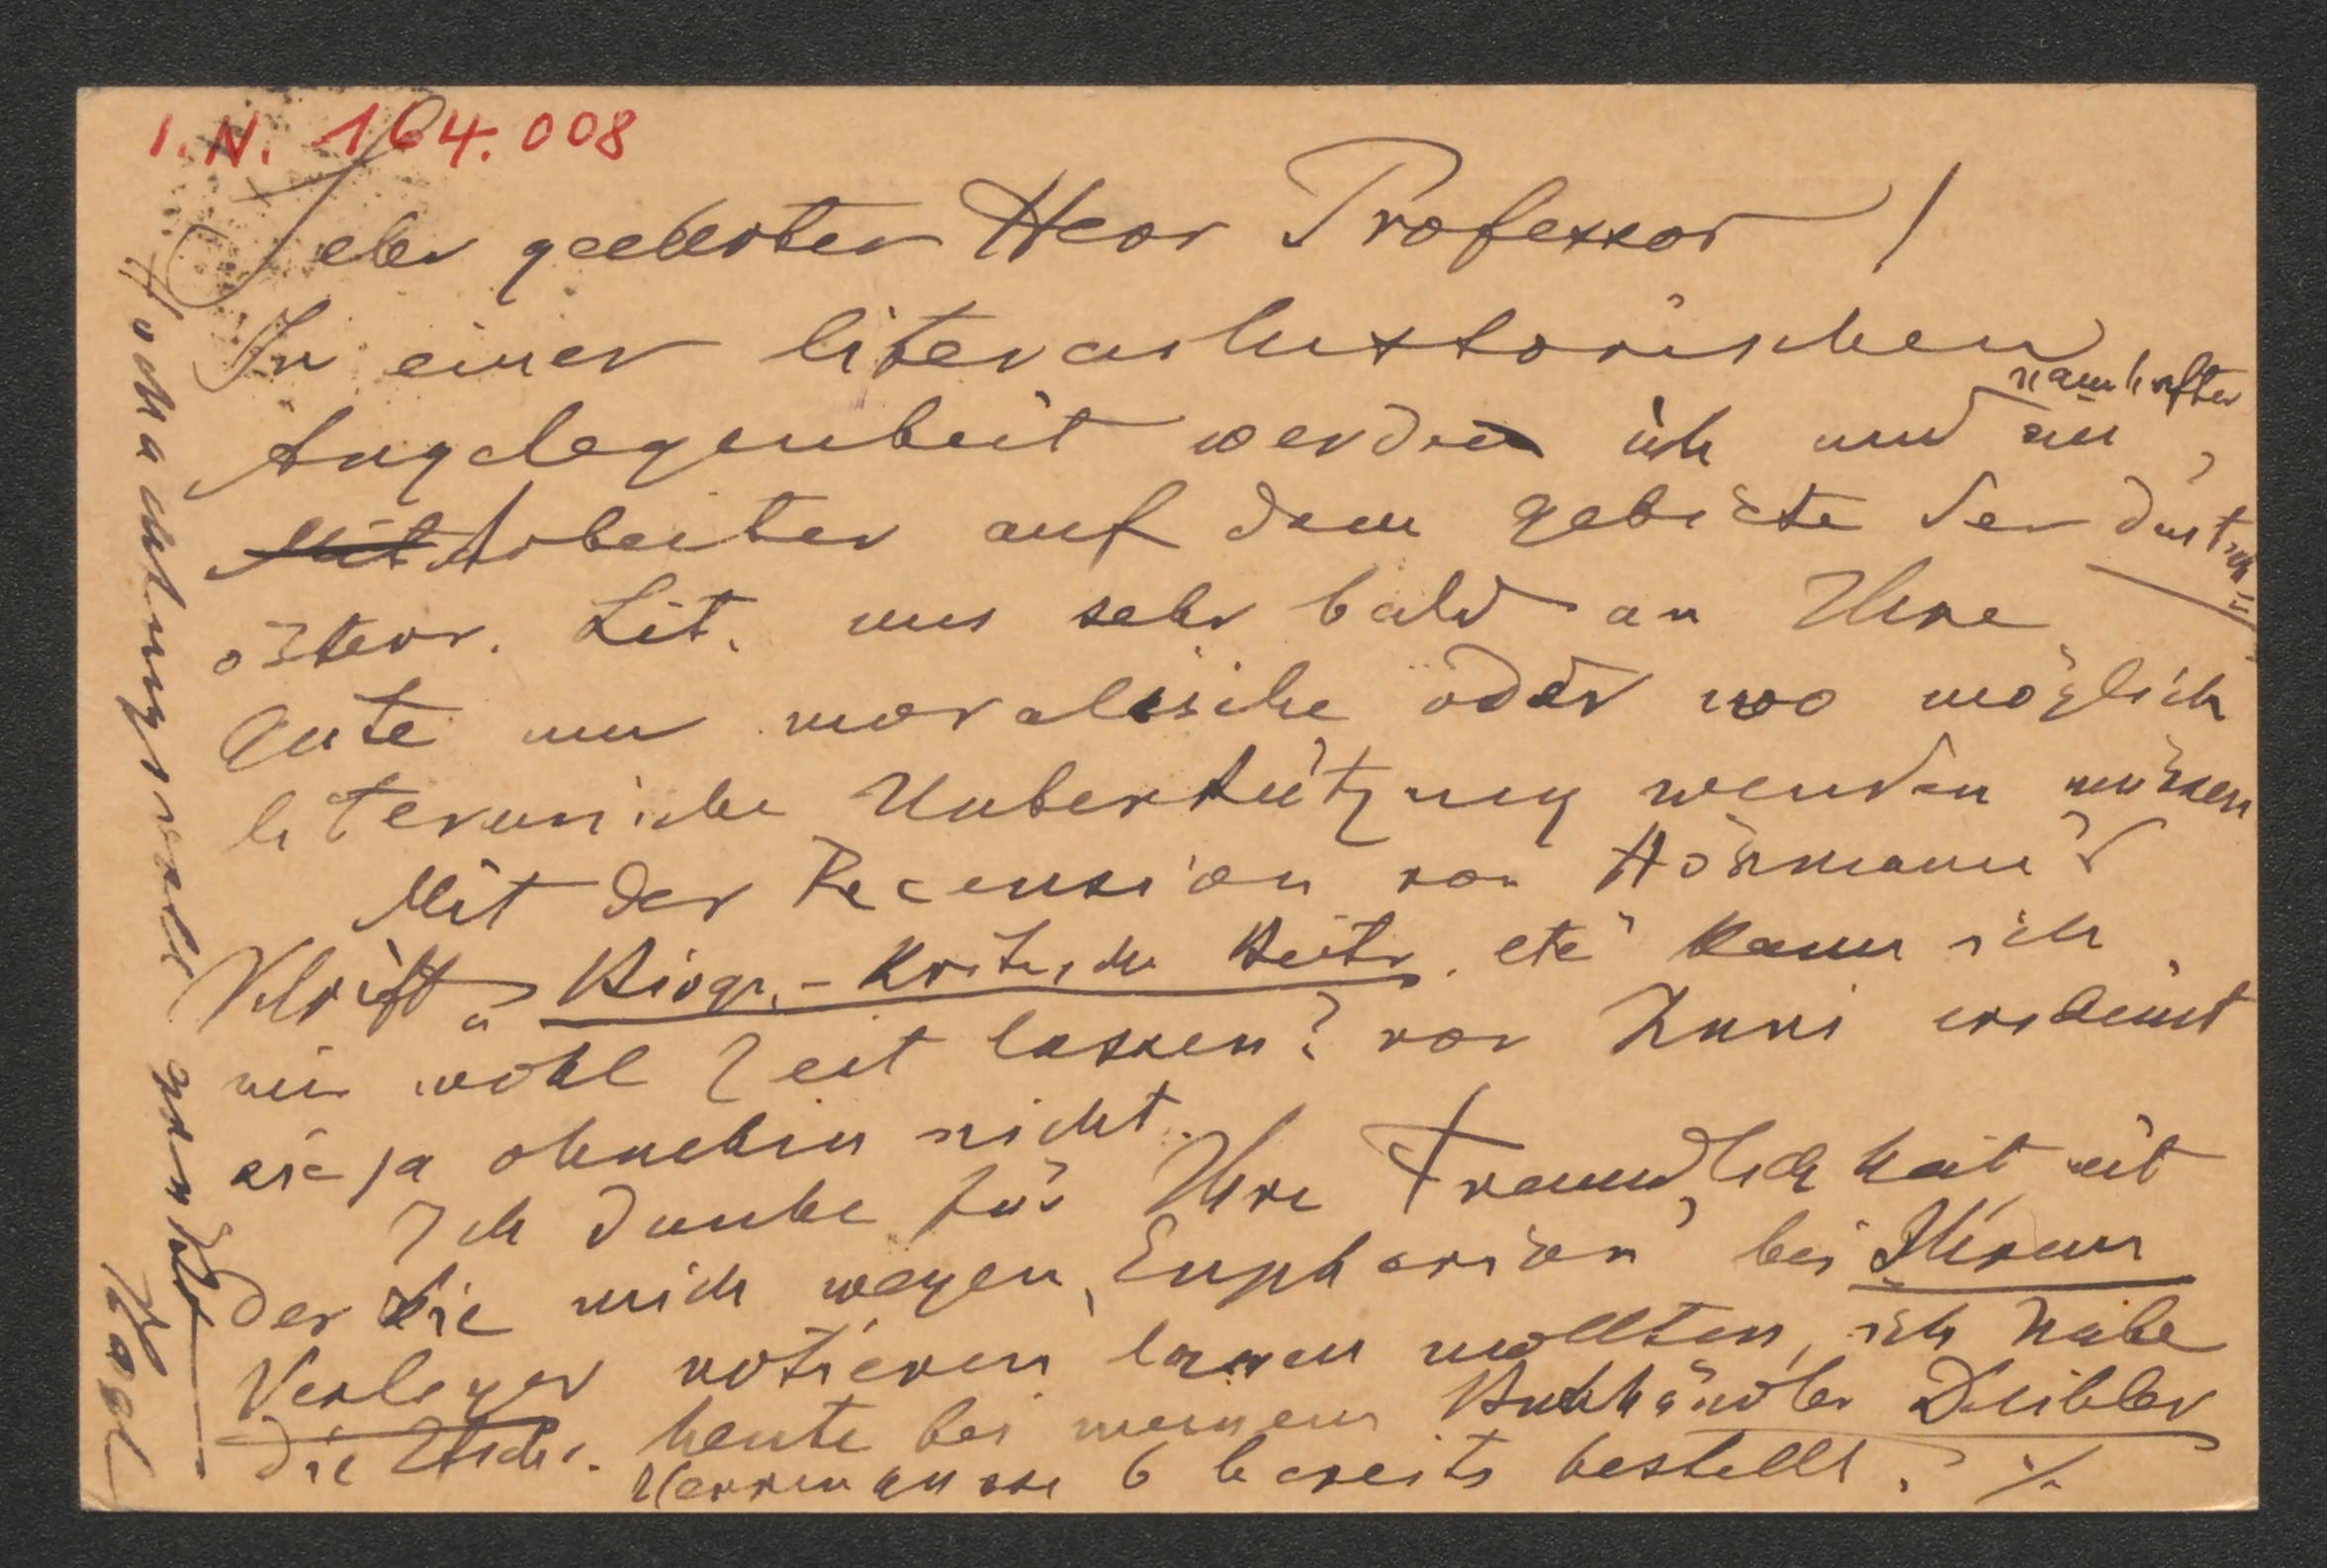 I.N. 164.008
Sehr geehrter Herr Professor!
In einer literarhistorischen
Angelegenheit werden ich und ein namhafter
Mit Arbeiter auf dem Gebiete der deutsch-
österr. Lit. uns sehr bald an Ihre
Güte um moralische oder wo möglich
literarische Unterstützung wenden müssen
Mit der Recension von Hörmann's
Schrift „Biogr.-Kritische Beitr. etc" kann ich
mir wohl Zeit lassen? vor Juni erscheint
sie ja ohnehin nicht.
Ich danke für Ihre Freundlichkeit mit
der Sie mich wegen „Euphorion" bei Ihrem
Verleger notieren lassen wollten, ich habe
die Ztschr. heute bei meinem Buchhändler Deibler
Herrengasse 6 bereits bestellt. ./.
Hochachtungsvoll